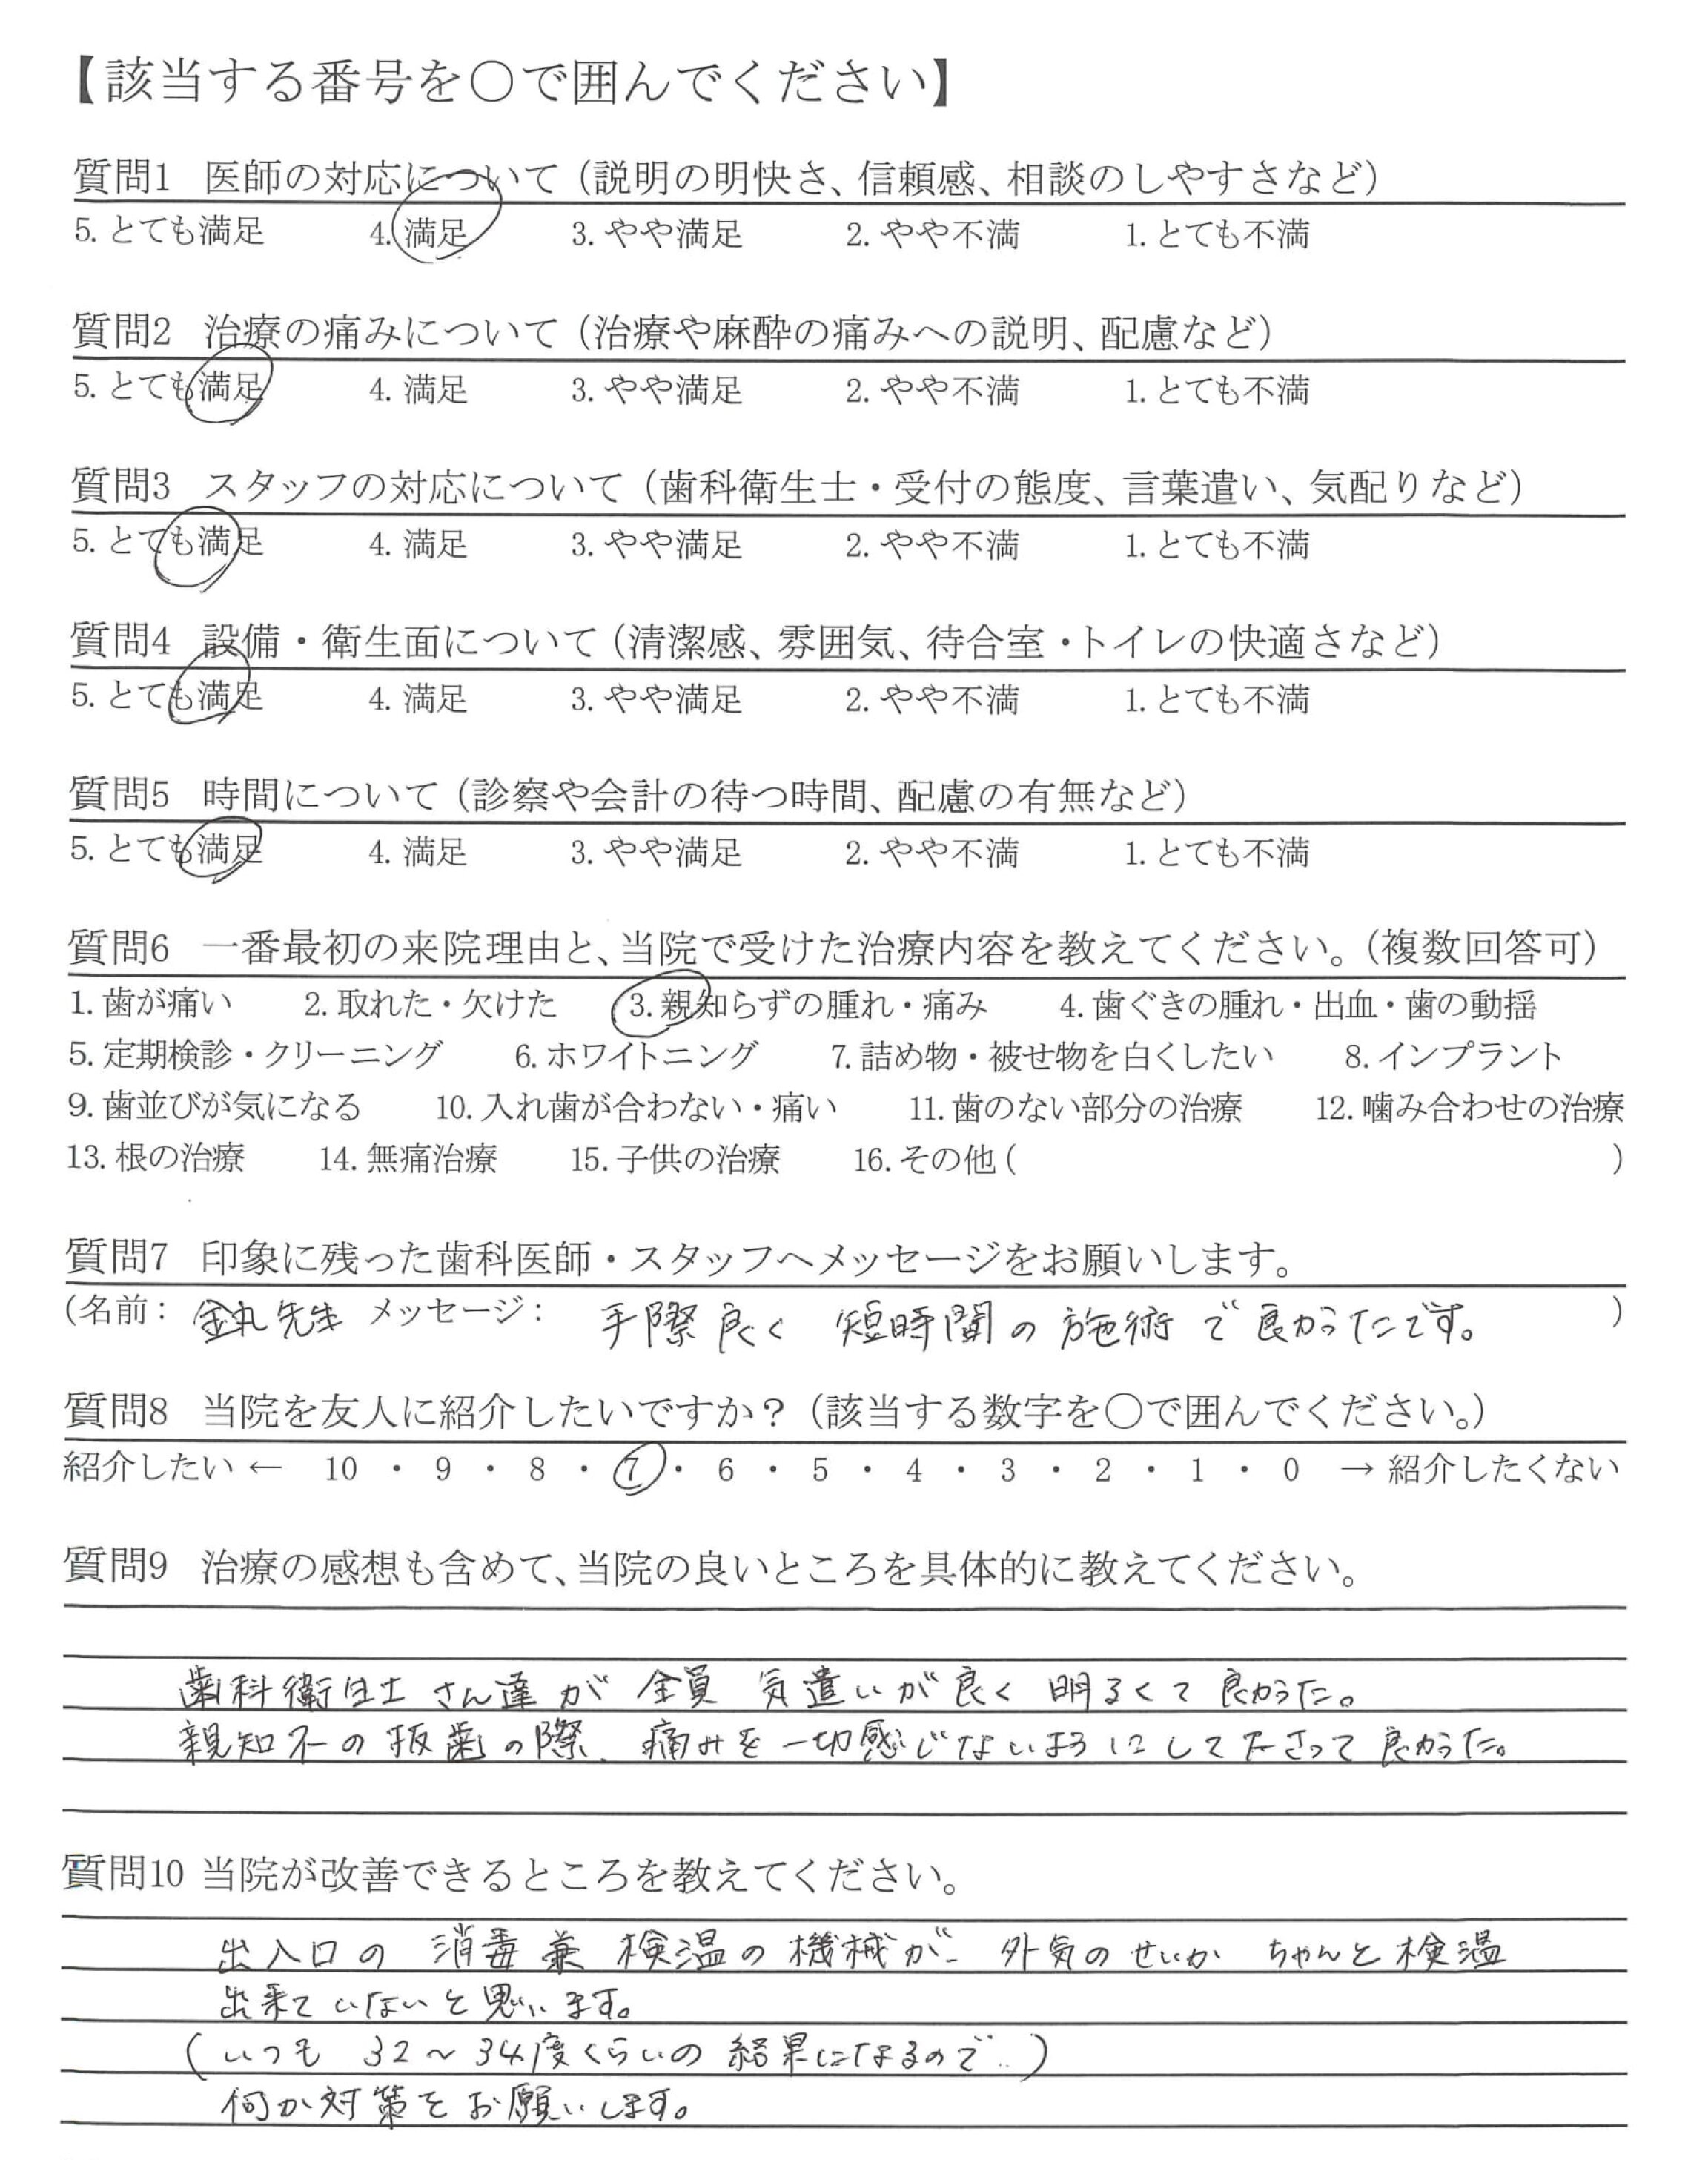 【該当する番号を○で囲んでください】
質問1 医師の対応について（説明の明快さ、信頼感、相談のしやすさなど）
5. とても満足 4. 満足 3. やや満足 2. やや不満 1. とても不満
質問2 治療の痛みについて（治療や麻酔の痛みへの説明、配慮など）
5. とても満足 4. 満足 3. やや満足 2. やや不満 1. とても不満
質問3 スタッフの対応について（歯科衛生士・受付の態度、言葉遣い、気配りなど）
5. とても満足 4. 満足 3. やや満足 2. やや不満 1. とても不満
質問4 設備・衛生面について（清潔感、雰囲気、待合室・トイレの快適さなど）
5. とても満足 4. 満足 3. やや満足 2. やや不満 1. とても不満
質問5 時間について（診察や会計の待つ時間、配慮の有無など）
5. とても満足 4. 満足 3. やや満足 2. やや不満 1. とても不満
質問6 一番最初の来院理由と、当院で受けた治療内容を教えてください。（複数回答可）
1. 歯が痛い 2. 取れた・欠けた 3. 親知らずの腫れ・痛み 4. 歯ぐきの腫れ・出血・歯の動揺
5. 定期検診・クリーニング 6. ホワイトニング 7. 詰め物・被せ物を白くしたい 8. インプラント
9. 歯並びが気になる 10. 入れ歯が合わない・痛い 11. 歯のない部分の治療 12. 噛み合わせの治療
13. 根の治療 14. 無痛治療 15. 子供の治療 16. その他（ ）
質問7 印象に残った歯科医師・スタッフへメッセージをお願いします。
（名前： 金丸先生 メッセージ： 手際良く 短時間の施術で良かったです。 ）
質問8 当院を友人に紹介したいですか？（該当する数字を○で囲んでください。）
紹介したい ← 10 ・ 9 ・ 8 ・ 7 ・ 6 ・ 5 ・ 4 ・ 3 ・ 2 ・ 1 ・ 0 → 紹介したくない
質問9 治療の感想も含めて、当院の良いところを具体的に教えてください。
歯科衛生士さん達が全員 気遣いが良く 明るくて良かった。
親知不の抜歯の際、痛みを一切感じないようにして下さって良かった。
質問10 当院が改善できるところを教えてください。
出入口の 消毒兼 検温の機械が 外気のせいか ちゃんと検温
出来ていないと思います。
（いつも 32～34度くらいの結果になるので‥）
何か対策をお願いします。